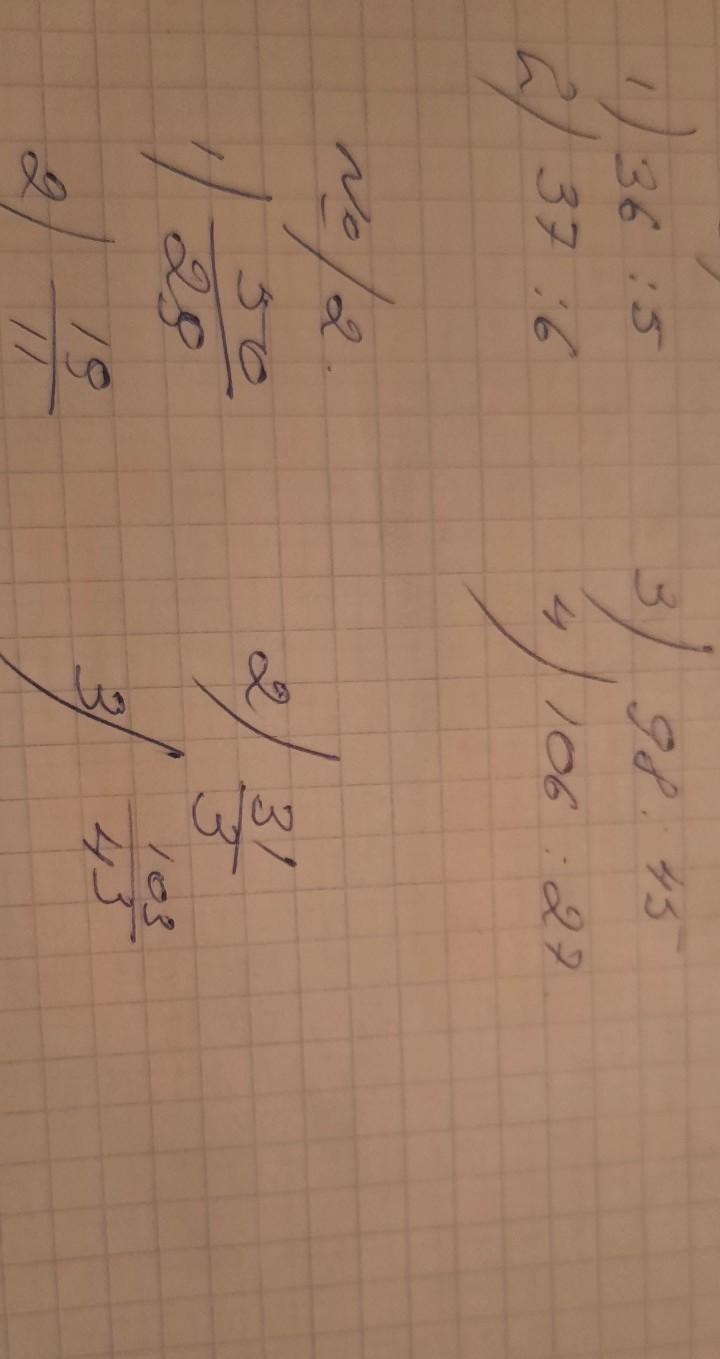 1) 36 : 5 3) 98 : 45
2) 37 : 6 4) 106 : 27
№ 2.
1) 56/29 2) 31/3
2) 19/11 3) 103/43